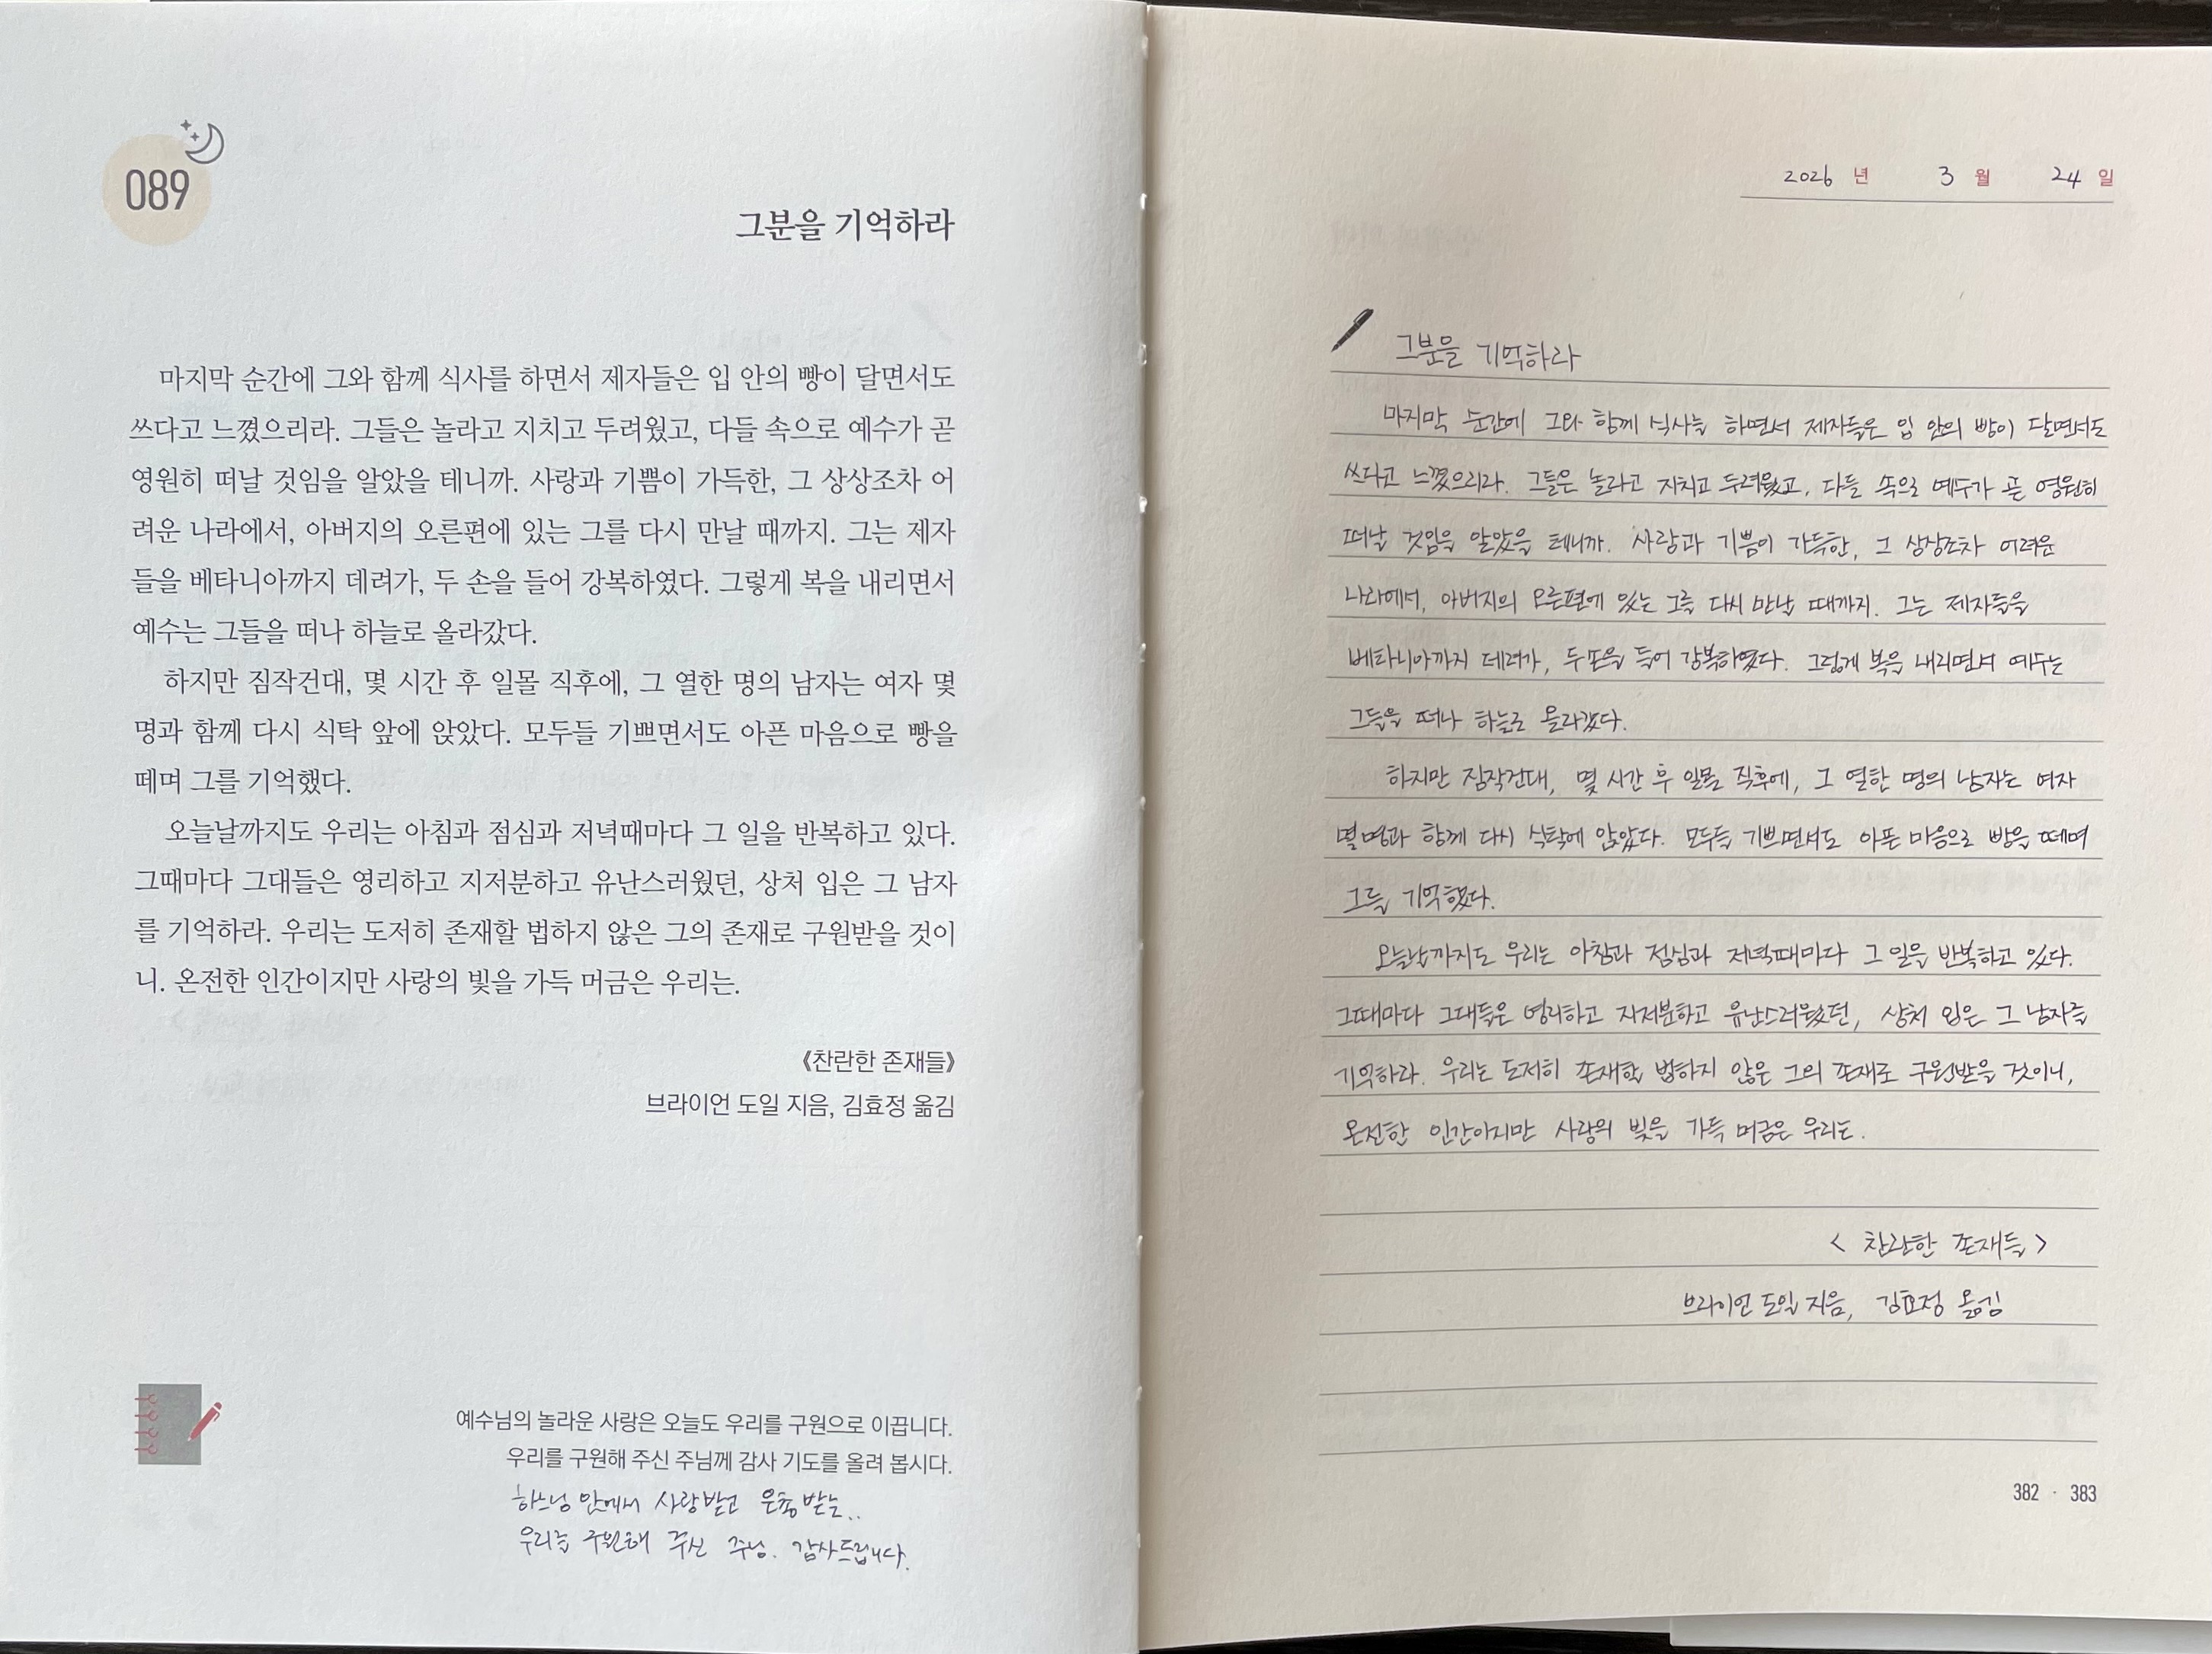 089
그분을 기억하라
마지막 순간에 그와 함께 식사를 하면서 제자들은 입 안의 빵이 달면서도
쓰다고 느꼈으리라. 그들은 놀라고 지치고 두려웠고, 다들 속으로 예수가 곧
영원히 떠날 것임을 알았을 테니까. 사랑과 기쁨이 가득한, 그 상상조차 어
려운 나라에서, 아버지의 오른편에 있는 그를 다시 만날 때까지. 그는 제자
들을 베타니아까지 데려가, 두 손을 들어 강복하였다. 그렇게 복을 내리면서
예수는 그들을 떠나 하늘로 올라갔다.
하지만 짐작건대, 몇 시간 후 일몰 직후에, 그 열한 명의 남자는 여자 몇
명과 함께 다시 식탁 앞에 앉았다. 모두들 기쁘면서도 아픈 마음으로 빵을
떼며 그를 기억했다.
오늘날까지도 우리는 아침과 점심과 저녁때마다 그 일을 반복하고 있다.
그때마다 그대들은 영리하고 지저분하고 유난스러웠던, 상처 입은 그 남자
를 기억하라. 우리는 도저히 존재할 법하지 않은 그의 존재로 구원받을 것이
니. 온전한 인간이지만 사랑의 빛을 가득 머금은 우리는.
《찬란한 존재들》
브라이언 도일 지음, 김효정 옮김
예수님의 놀라운 사랑은 오늘도 우리를 구원으로 이끕니다.
우리를 구원해 주신 주님께 감사 기도를 올려 봅시다.
하느님 안에서 사랑받고 은총받는..
우리를 구원해 주신 주님. 감사드립니다.
2026 년 3 월 24 일
그분을 기억하라
마지막 순간에 그와 함께 식사를 하면서 제자들은 입 안의 빵이 달면서도
쓰다고 느꼈으리라. 그들은 놀라고 지치고 두려웠고, 다들 속으로 예수가 곧 영원히
떠날 것임을 알았을 테니까. 사랑과 기쁨이 가득한, 그 상상조차 어려운
나라에서, 아버지의 오른편에 있는 그를 다시 만날 때까지. 그는 제자들을
베타니아까지 데려가, 두 손을 들어 강복하였다. 그렇게 복을 내리면서 예수는
그들을 떠나 하늘로 올라갔다.
하지만 짐작건대, 몇 시간 후 일몰 직후에, 그 열한 명의 남자는 여자
몇 명과 함께 다시 식탁에 앉았다. 모두들 기쁘면서도 아픈 마음으로 빵을 떼며
그를 기억했다.
오늘날까지도 우리는 아침과 점심과 저녁때마다 그 일을 반복하고 있다.
그때마다 그대들은 영리하고 지저분하고 유난스러웠던, 상처 입은 그 남자를
기억하라. 우리는 도저히 존재할 법하지 않은 그의 존재로 구원받을 것이니,
온전한 인간이지만 사랑의 빛을 가득 머금은 우리는.
< 찬란한 존재들 >
브라이언 도일 지음, 김효정 옮김
382 · 383